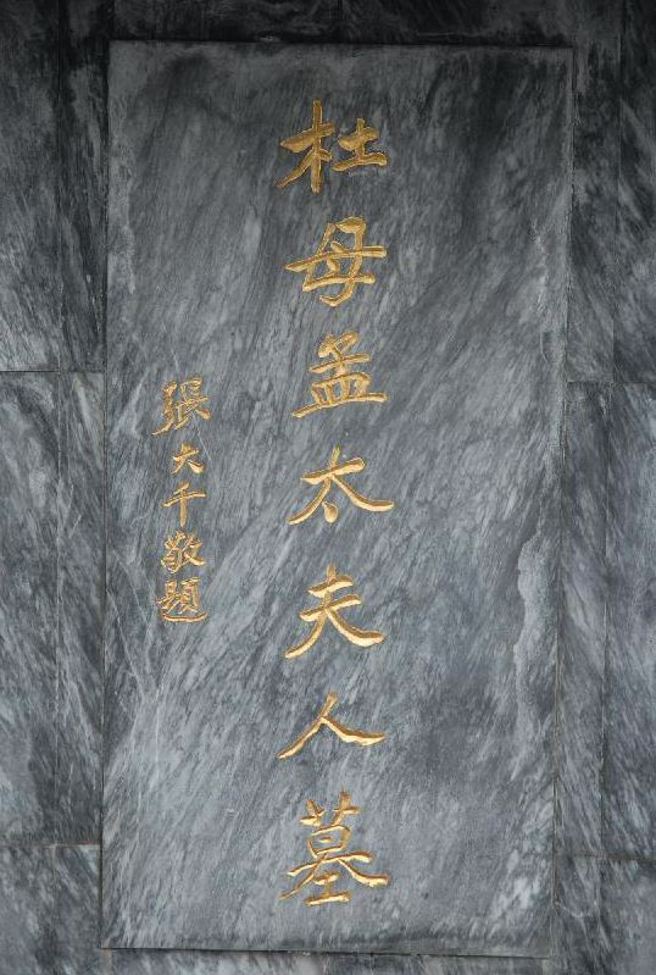 杜母孟太夫人墓
張大千敬題